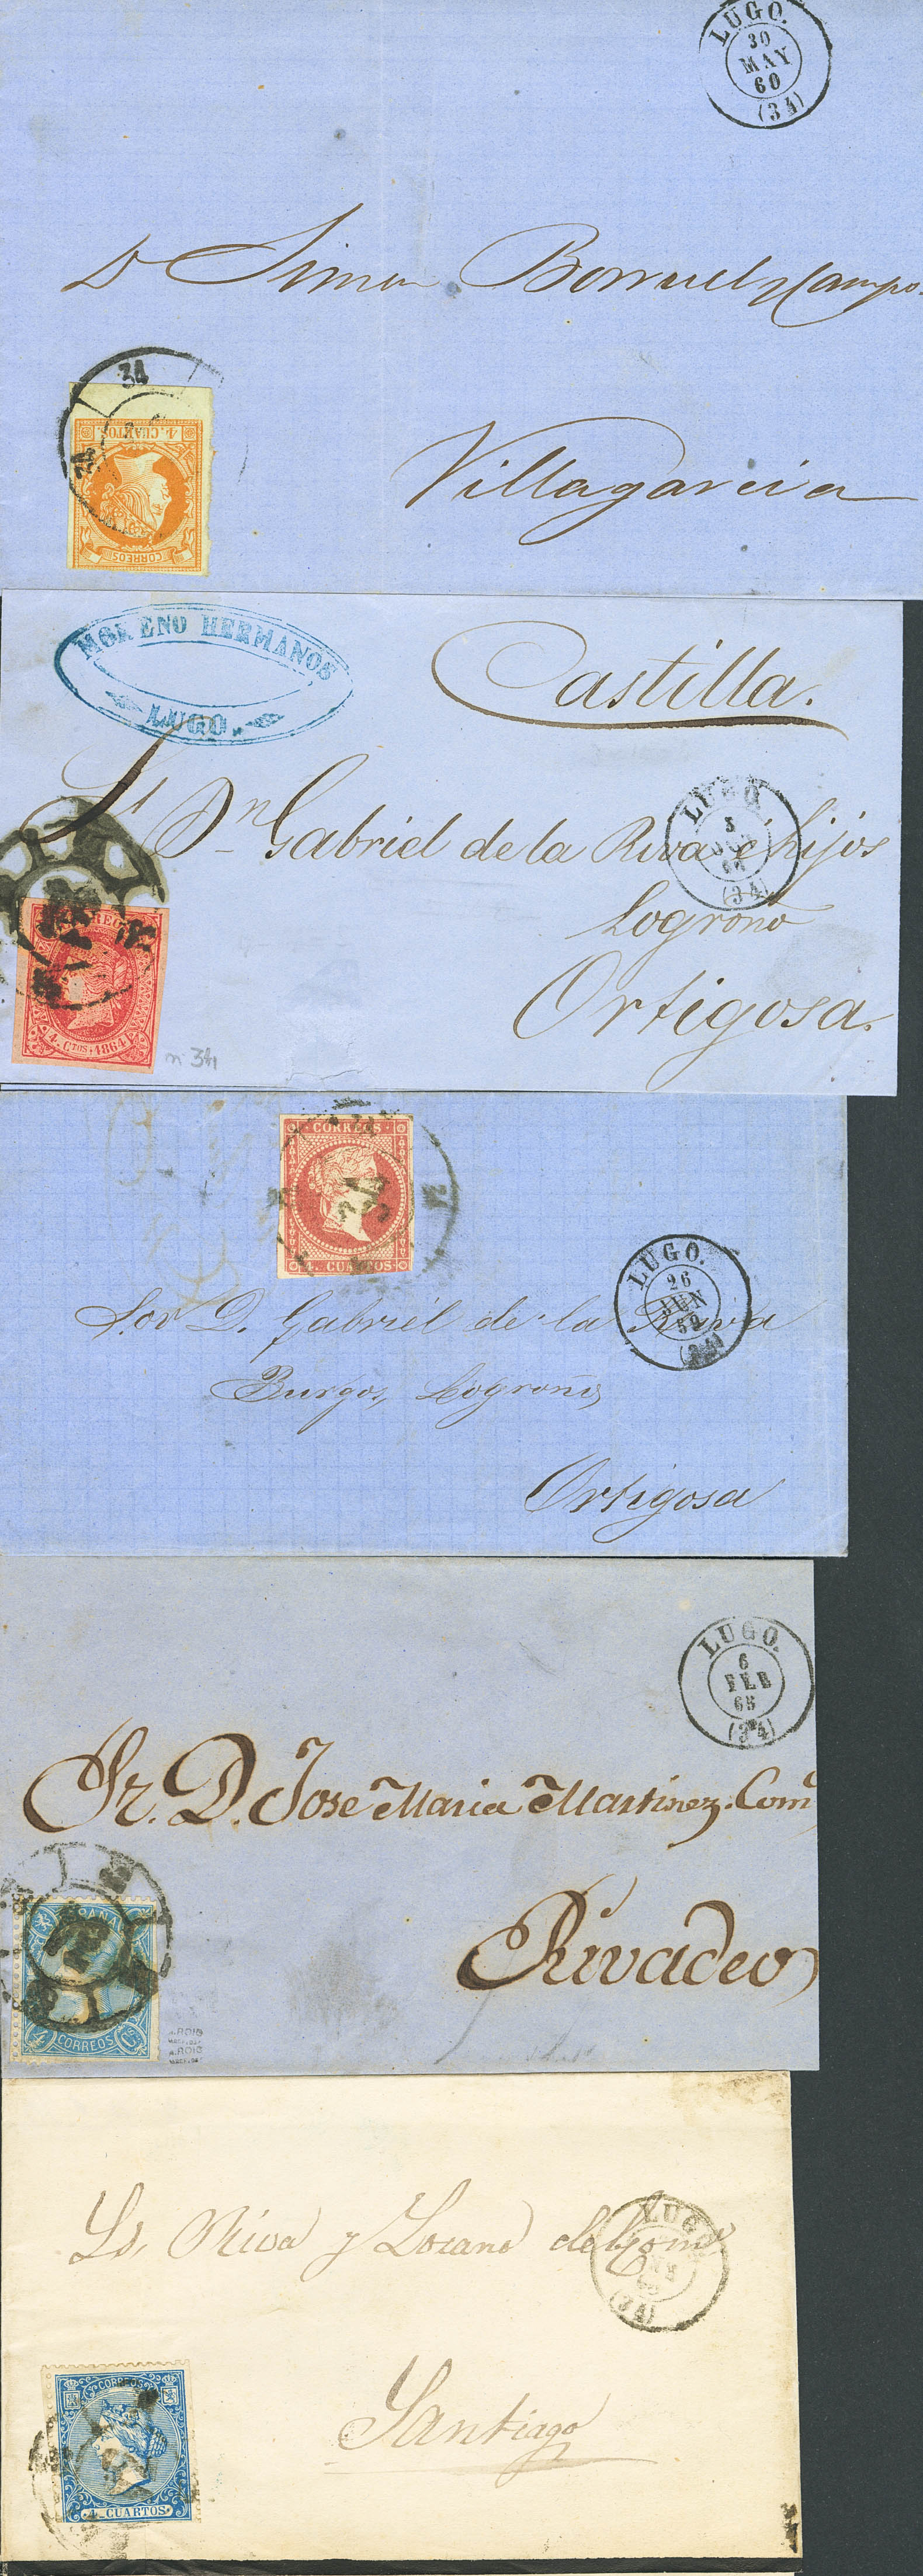 LUGO.
30
MAY
60
(34)
Dn Simon Borruel y Campo.
34
4. CUARTOS
CORREOS
Villagarcia
MORENO HERMANOS
LUGO.
Castilla.
Sr Dn Gabriel de la Riva é hijos
LUGO
5
(34)
Logroño
Ortigosa.
4. Ctos. 1864
nº 34
CORREOS
4. CUARTOS
LUGO.
26
JUN
59
(34)
Sor D. Gabriel de la Riva
Burgos, Logroño,
Ortigosa
LUGO.
6
FEB
65
(34)
Sr. D. José Maria Martinez. Comº
Rivadeo
4 CORREOS Cs
A.ROIG
A.ROIG
LUGO
(34)
Ss, Riva y Lozano del Comº
Santiago
CORREOS
4. CUARTOS